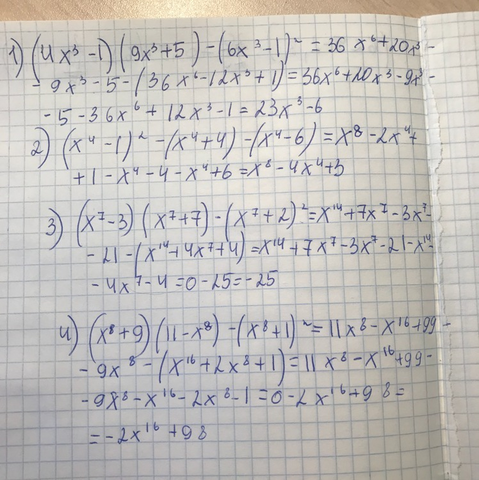 1) (4x³-1)(9x³+5)-(6x³-1)²=36x⁶+20x³-
-9x³-5-(36x⁶-12x³+1)=36x⁶+20x³-9x³-
-5-36x⁶+12x³-1=23x³-6
2) (x⁴-1)²-(x⁴+4)-(x⁴-6)=x⁸-2x⁴+
+1-x⁴-4-x⁴+6=x⁸-4x⁴+3
3) (x⁷-3)(x⁷+7)-(x⁷+2)²=x¹⁴+7x⁷-3x⁷-
-21-(x¹⁴+4x⁷+4)=x¹⁴+7x⁷-3x⁷-21-x¹⁴-
-4x⁷-4=0-25=-25
4) (x⁸+9)(11-x⁸)-(x⁸+1)²=11x⁸-x¹⁶+99-
-9x⁸-(x¹⁶+2x⁸+1)=11x⁸-x¹⁶+99-
-9x⁸-x¹⁶-2x⁸-1=0-2x¹⁶+98=
=-2x¹⁶+98